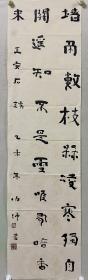 墙角數枝梅凌寒獨自
開遥知不是雪唯有暗香
來 王安石詩